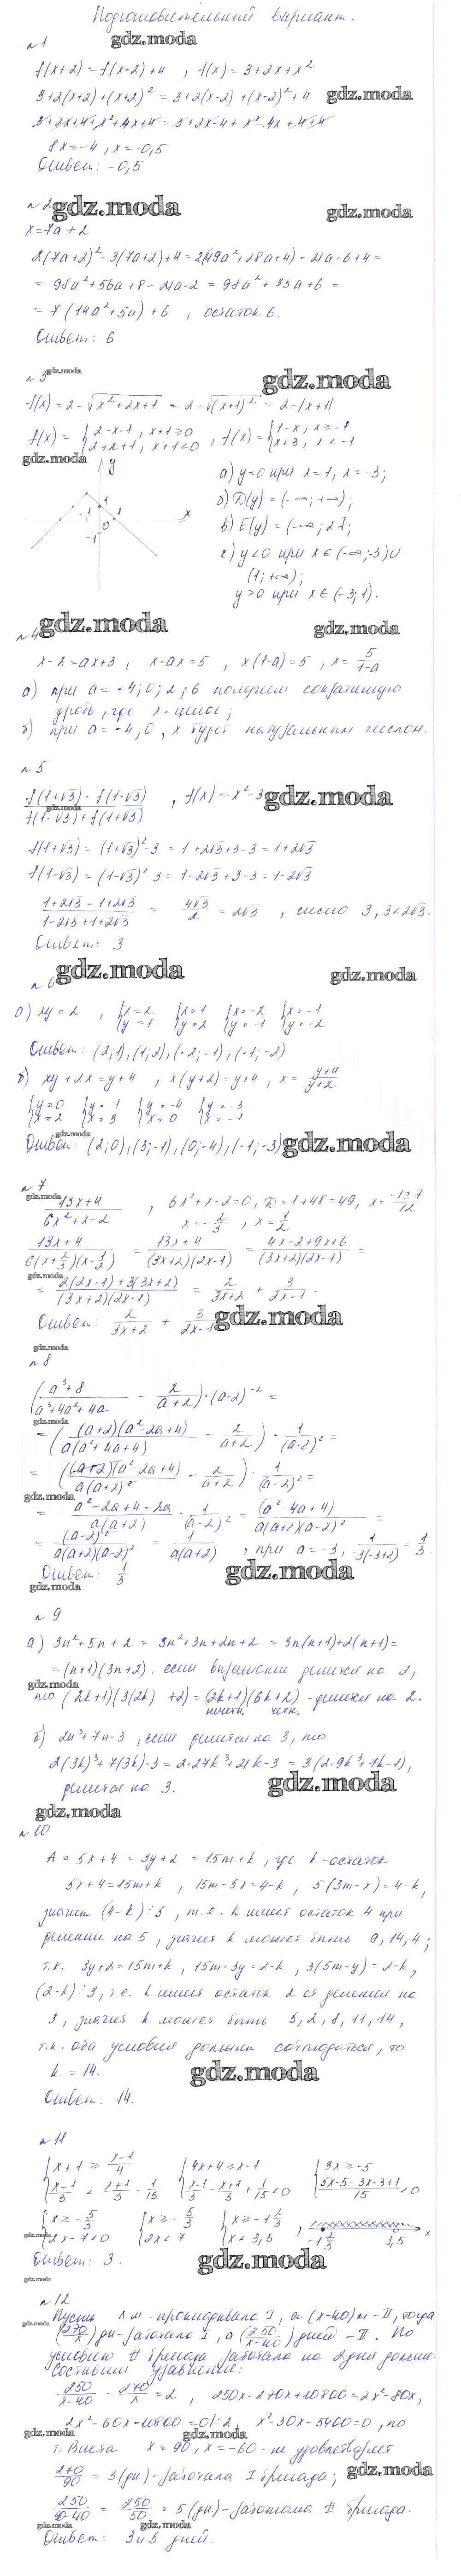 Подготовительный вариант.
gdz.moda
№1
f(x+2) = f(x-2)+4 , f(x) = 3+2x+x²
3+2(x+2)+(x+2)² = 3+2(x-2)+(x-2)²+4
gdz.moda
3+2x+4+x²+4x+4 = 3+2x-4+x²-4x+4+4
8x=-4, x=-0,5
Ответ: -0,5
№2
gdz.moda
gdz.moda
x=7a+2
2(7a+2)²-3(7a+2)+4=2(49a²+28a+4)-21a-6+4=
= 98a²+56a+8-21a-2 = 98a²+35a+6 =
= 7(14a²+5a)+6 , остаток 6.
Ответ: 6
№3
gdz.moda
gdz.moda
f(x)=2-√x²+2x+1 = 2-√(x+1)² = 2-|x+1|
f(x) = { 2-x-1, x+1≥0 , f(x)= { 1-x, x≥-1
2+x+1, x+1<0 x+3, x<-1
gdz.moda
y
а) y=0 при x=1, x=-3;
1
-1 0 1 x
-1
б) D(y) = (-∞;+∞);
в) E(y) = (-∞; 2];
г) y<0 при x∈(-∞;-3)∪
(1;+∞);
y>0 при x∈(-3;1).
gdz.moda
gdz.moda
№4
x-2=ax+3, x-ax=5, x(1-a)=5, x= 5/(1-a)
а) при a = -4; 0; 2; 6 получим сократимую
дробь, где x-целое;
б) при a=-4; 0, x будет натуральным числом.
№5
(f(1+√3)-f(1-√3))/(f(1-√3)+f(1+√3)) , f(x)=x²-3
gdz.moda
gdz.moda
f(1+√3)=(1+√3)²-3 = 1+2√3+3-3 = 1+2√3
f(1-√3)=(1-√3)²-3 = 1-2√3+3-3 = 1-2√3
(1+2√3-1+2√3)/(1-2√3+1+2√3) = 4√3/2 = 2√3 , число 3, 3<2√3.
Ответ: 3
№6
gdz.moda
gdz.moda
а) xy=2, {x=2 {x=1 {x=-2 {x=-1
y=1 y=2 y=-1 y=-2
Ответ: (2;1),(1;2),(-2;-1),(-1;-2)
б) xy+2x=y+4, x(y+2)=y+4, x=(y+4)/(y+2)
{y=0 {y=-1 {y=-4 {y=-3
x=2 x=3 x=0 x=-1
gdz.moda
Ответ: (2;0),(3;-1),(0;-4),(-1;-3)
gdz.moda
№7
gdz.moda
(13x+4)/(6x²+x-2) , 6x²+x-2=0, D=1+48=49, x=(-1±7)/12
x=-2/3, x=1/2
(13x+4)/(6(x+2/3)(x-1/2)) = (13x+4)/((3x+2)(2x-1)) = (4x-2+9x+6)/((3x+2)(2x-1)) =
gdz.moda
= (2(2x-1)+3(3x+2))/((3x+2)(2x-1)) = 2/(3x+2) + 3/(2x-1).
Ответ: 2/(3x+2) + 3/(2x-1)
gdz.moda
gdz.moda
№8
((a³+8)/(a³+4a²+4a) - 2/(a+2))·(a-2)⁻² =
gdz.moda
= ((a+2)(a²-2a+4)/(a(a²+4a+4)) - 2/(a+2)) · 1/(a-2)² =
= ((a+2)(a²-2a+4)/(a(a+2)²) - 2/(a+2)) · 1/(a-2)² =
gdz.moda
= (a²-2a+4-2a)/(a(a+2)) · 1/(a-2)² = (a²-4a+4)/(a(a+2)(a-2)²) =
= (a-2)²/(a(a+2)(a-2)²) = 1/(a(a+2)) , при a=-3, 1/(-3(-3+2)) = 1/3.
Ответ: 1/3
gdz.moda
gdz.moda
№9
а) 3n²+5n+2 = 3n²+3n+2n+2 = 3n(n+1)+2(n+1)=
= (n+1)(3n+2), если выражение делится на 2,
gdz.moda
то (2k+1)(3(2k)+2)=(2k+1)(6k+2)-делится на 2.
нечетн. четн.
б) 2n³+7n-3, если делится на 3, то
2(3k)³+7(3k)-3=2·27k³+21k-3=3(2·9k³+7k-1),
делится на 3.
gdz.moda
gdz.moda
№10
A = 5x+4 = 3y+2 = 15m+k, где k-остаток
5x+4=15m+k, 15m-5x=4-k, 5(3m-x)=4-k,
значит (4-k)⋮5, т.е. k имеет остаток 4 при
делении на 5, значит k может быть 9, 14, 4;
т.к. 3y+2=15m+k, 15m-3y=2-k, 3(5m-y)=2-k,
(2-k)⋮3, т.е. k имеет остаток 2 от деления на
3, значит k может быть 5, 2, 8, 11, 14,
т.к. оба условия должны соблюдаться, то
k = 14.
gdz.moda
Ответ: 14.
№11
{x+1 ≥ (x-1)/4 {4x+4≥x-1 {3x≥-5
(x-1)/3 < (x+1)/5 + 1/15 (x-1)/3 - (x+1)/5 - 1/15 <0 (5x-5-3x-3-1)/15 <0
{x≥-5/3 {x≥-5/3 {x≥-1 2/3
2x-7<0 2x<7 x<3,5
gdz.moda
-1 2/3 3,5 x
Ответ: 3.
gdz.moda
gdz.moda
№12
Пусть x м-прокладывала I, а (x-40) м-II, тогда
gdz.moda
(270/x) дн-работала I, а (250/(x-40)) дней-II. По
условию II бригада работала на 2 дня дольше.
Составим уравнение:
250/(x-40) - 270/x = 2 , 250x-270x+10800=2x²-80x,
2x²-60x-10800=0 |:2, x²-30x-5400=0, по
gdz.moda
gdz.moda
т. Виета x=90, x=-60-не удовлетворяет
270/90 = 3(дн)-работала I бригада;
gdz.moda
250/(90-40) = 250/50 = 5(дн)-работала II бригада.
gdz.moda
gdz.moda
Ответ: 3 и 5 дней.
gdz.moda